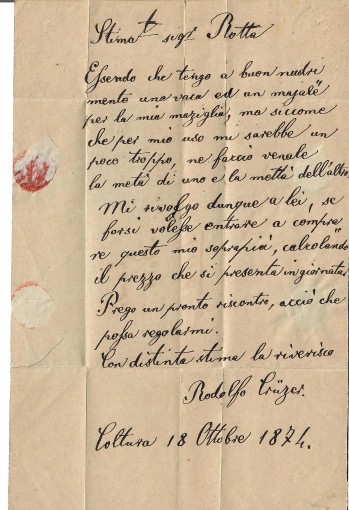 Stimat segr Rotta
Essendo che tengo a buon nudri
mento una vaca ed un majale
per la mia maziglia, ma siccome
che per mio uso mi sarebbe un
poco troppo, ne faccio venale
la metà di uno e la mettà dell'altro,
Mi rivolgo dunque a lei, se
forsi volesse entrare a compra
re questo mio soprapiù, calcolando
il prezzo che si presenta in giornata.
Prego un pronto riscontro, acciò che
possa regolarmi.
Con distinta stima la riverisco
Rodolfo Crüzer.
Coltura 18 Ottobre 1874.